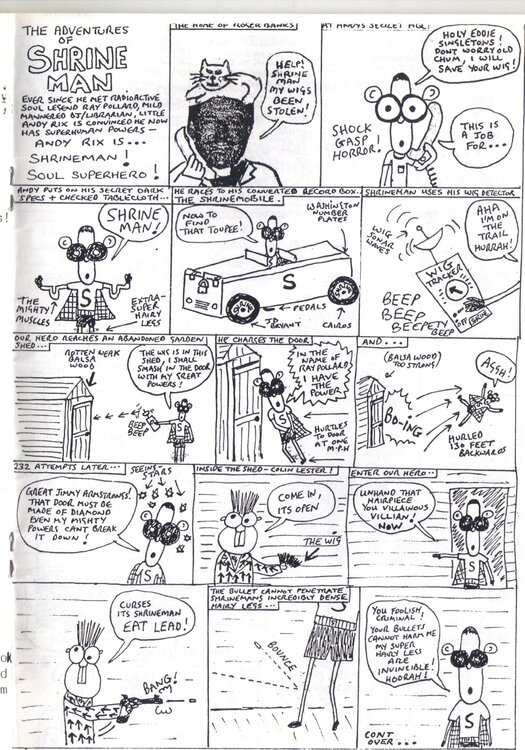 THE ADVENTURES
OF
SHRINE
MAN
EVER SINCE HE MET RADIOACTIVE
SOUL LEGEND RAY POLLARD, MILD
MANNERED DJ/LIBRARIAN, LITTLE
ANDY RIX IS CONVINCED HE NOW
HAS SUPERHUMAN POWERS -
ANDY RIX IS...
SHRINEMAN!
SOUL SUPERHERO!
THE HOME OF ROGER BANKS
HELP!
SHRINE
MAN
MY WIGS
BEEN
STOLEN!
AT ANDYS SECRET
HOLY EDDIE
SINGLETONS!
DONT WORRY OLD
CHUM, I WILL
SAVE YOUR WIG!
SHOCK
GASP
HORROR!
THIS IS
A JOB
FOR...
ANDY PUTS ON HIS SECRET DARK
SPECS + CHECKED TABLECLOTH...
SHRINE
MAN!
S
THE
MIGHTY
MUSCLES
EXTRA-
SUPER
HAIRY
LEGS
HE RACES TO HIS CONVERTED RECORD BOX..
THE SHRINEMOBILE.
WASHINGTON
NUMBER
PLATES
NOW TO
FIND
THAT TOUPEE!
S
PEDALS
JD
BRYANT
CAIROS
SHRINEMAN USES HIS WIG DETECTOR
WIG
SONAR
WAVES
AHA
I'M ON
THE
TRAIL
HURRAH!
WIG
TRACKER
OFF
BEEP
BEEP
BEEPETY
BEEP
OUR HERO REACHES AN ABANDONED GARDEN
SHED...
ROTTEN WEAK
BALSA
WOOD
THE WIG IS IN THIS
SHED, I SHALL
SMASH IN THE DOOR
WITH MY GREAT
POWERS!
BEEP
BEEP
S
HE CHARGES THE DOOR
IN THE
NAME OF
RAY POLLARD
I HAVE
THE
POWER
S
HURTLES
TO DOOR
AT ONE
M.P.H
AND...
(BALSA WOOD
TOO STRONG)
AGGH!
BO-ING
HURLED
130 FEET
BACKWARDS
232 ATTEMPTS LATER...
SEEING
STARS
GREAT JIMMY ARMSTRONGS!
THAT DOOR MUST BE
MADE OF DIAMOND
EVEN MY MIGHTY
POWERS CANT BREAK
IT DOWN!
S
INSIDE THE SHED - COLIN LESTER!
COME IN,
ITS OPEN
THE WIG
ENTER OUR HERO..
UNHAND THAT
HAIRPIECE
YOU VILLAINOUS
VILLIAN!
NOW
S
CURSES
ITS SHRINEMAN
EAT LEAD!
BANG!
THE BULLET CANNOT PENETRATE
SHRINEMANS INCREDIBLY DENSE
HAIRY LEGS...
BOUNCE
YOU FOOLISH
CRIMINAL!
YOUR BULLETS
CANNOT HARM ME
MY SUPER
HAIRY LEGS
ARE
INVINCIBLE!
HOORAH!
S
CONT
OVER...